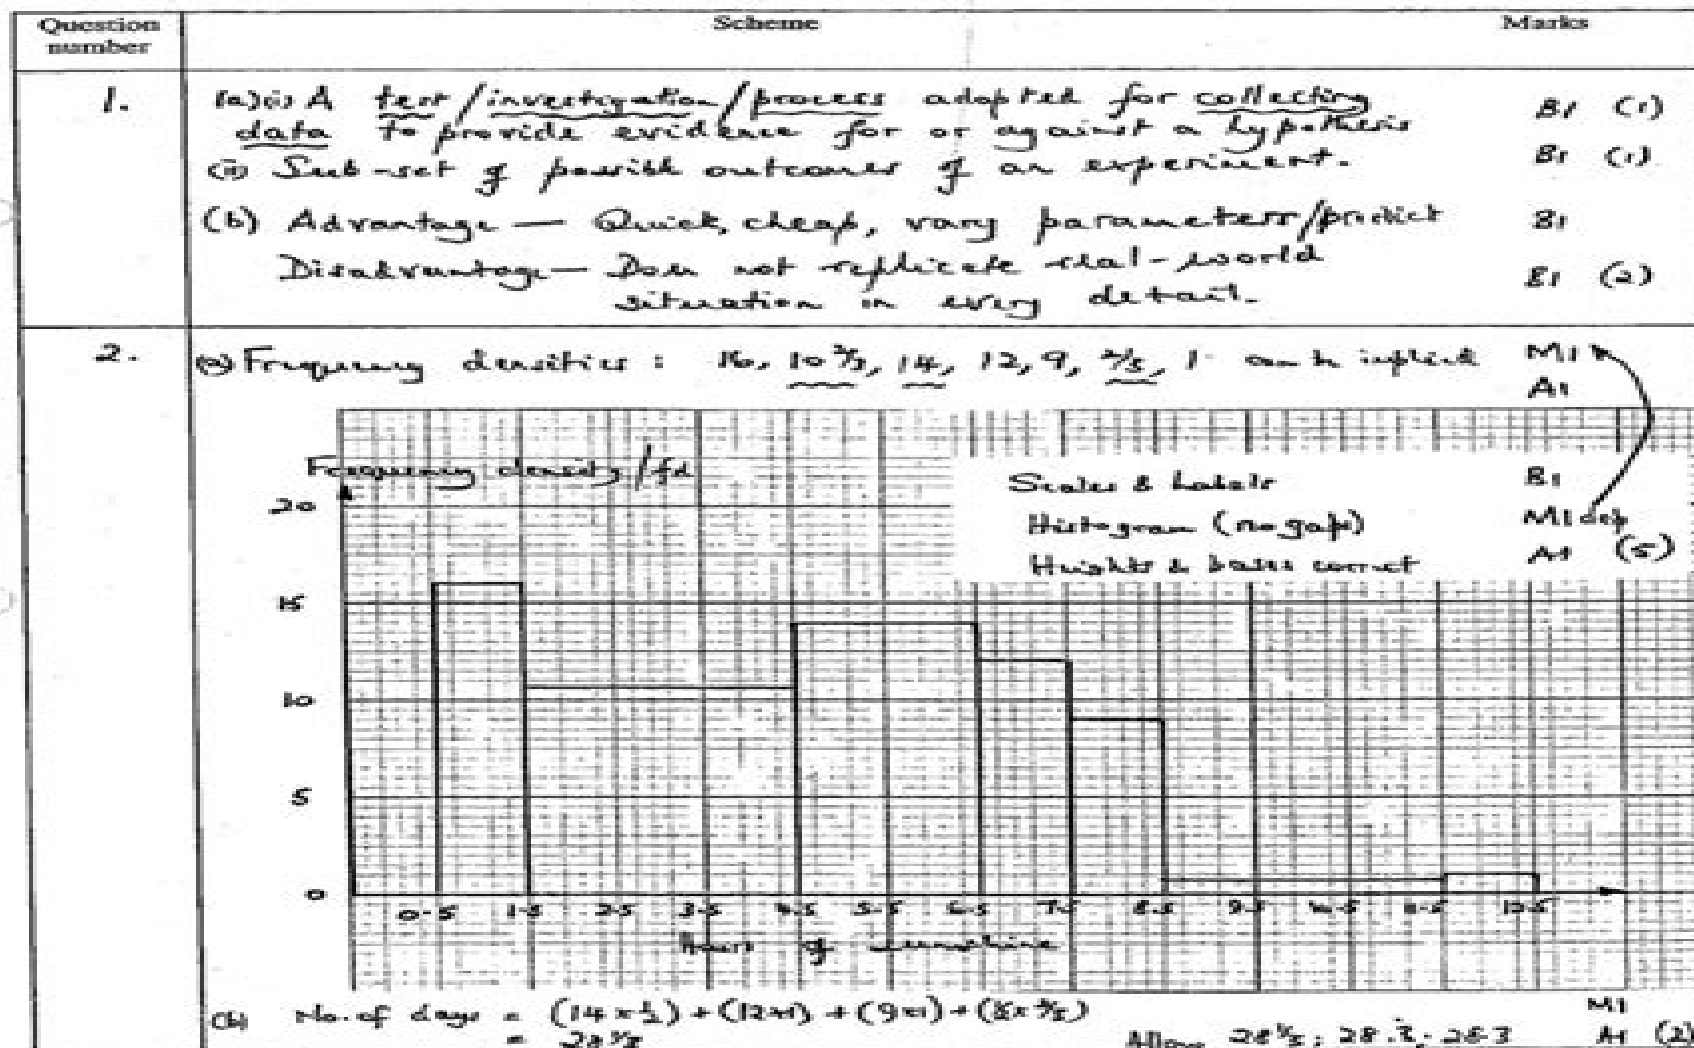 Question number
Scheme
Marks
1.
(a)(i) A test/investigation/process adopted for collecting B1 (1)
data to provide evidence for or against a hypothesis
(ii) Sub-set of possible outcomes of an experiment. B1 (1)
(b) Advantage — Quick, cheap, vary parameters/predict B1
Disadvantage — Does not replicate real-world
situation in every detail. B1 (2)
2.
(a) Frequency densities : 16, 10 2/3, 14, 12, 9, 1 can be implied M1
A1
Frequency density/fd
Scales & labels B1
Histogram (no gaps) M1 dep
Heights & bases correct A1 (5)
20
15
10
5
0
0.5 1.5 2.5 3.5 4.5 5.5 6.5 7.5 8.5 9.5
Hours of sunshine
(b) No. of days = (14 x ½) + (12x1) + (9x1) + M1
= Allow 28.3 A1 (2)